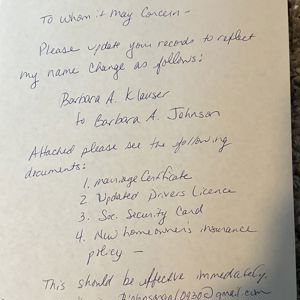 To whom it May Concern -
Please update your records to reflect
my name change as follows:
Barbara A. Klauser
to Barbara A. Johnson
Attached please see the following
documents:
1. marriage Certificate
2 Updated Drivers Licence
3. Soc. Security Card
4. New homeowners insurance
policy -
This should be effective immediately.